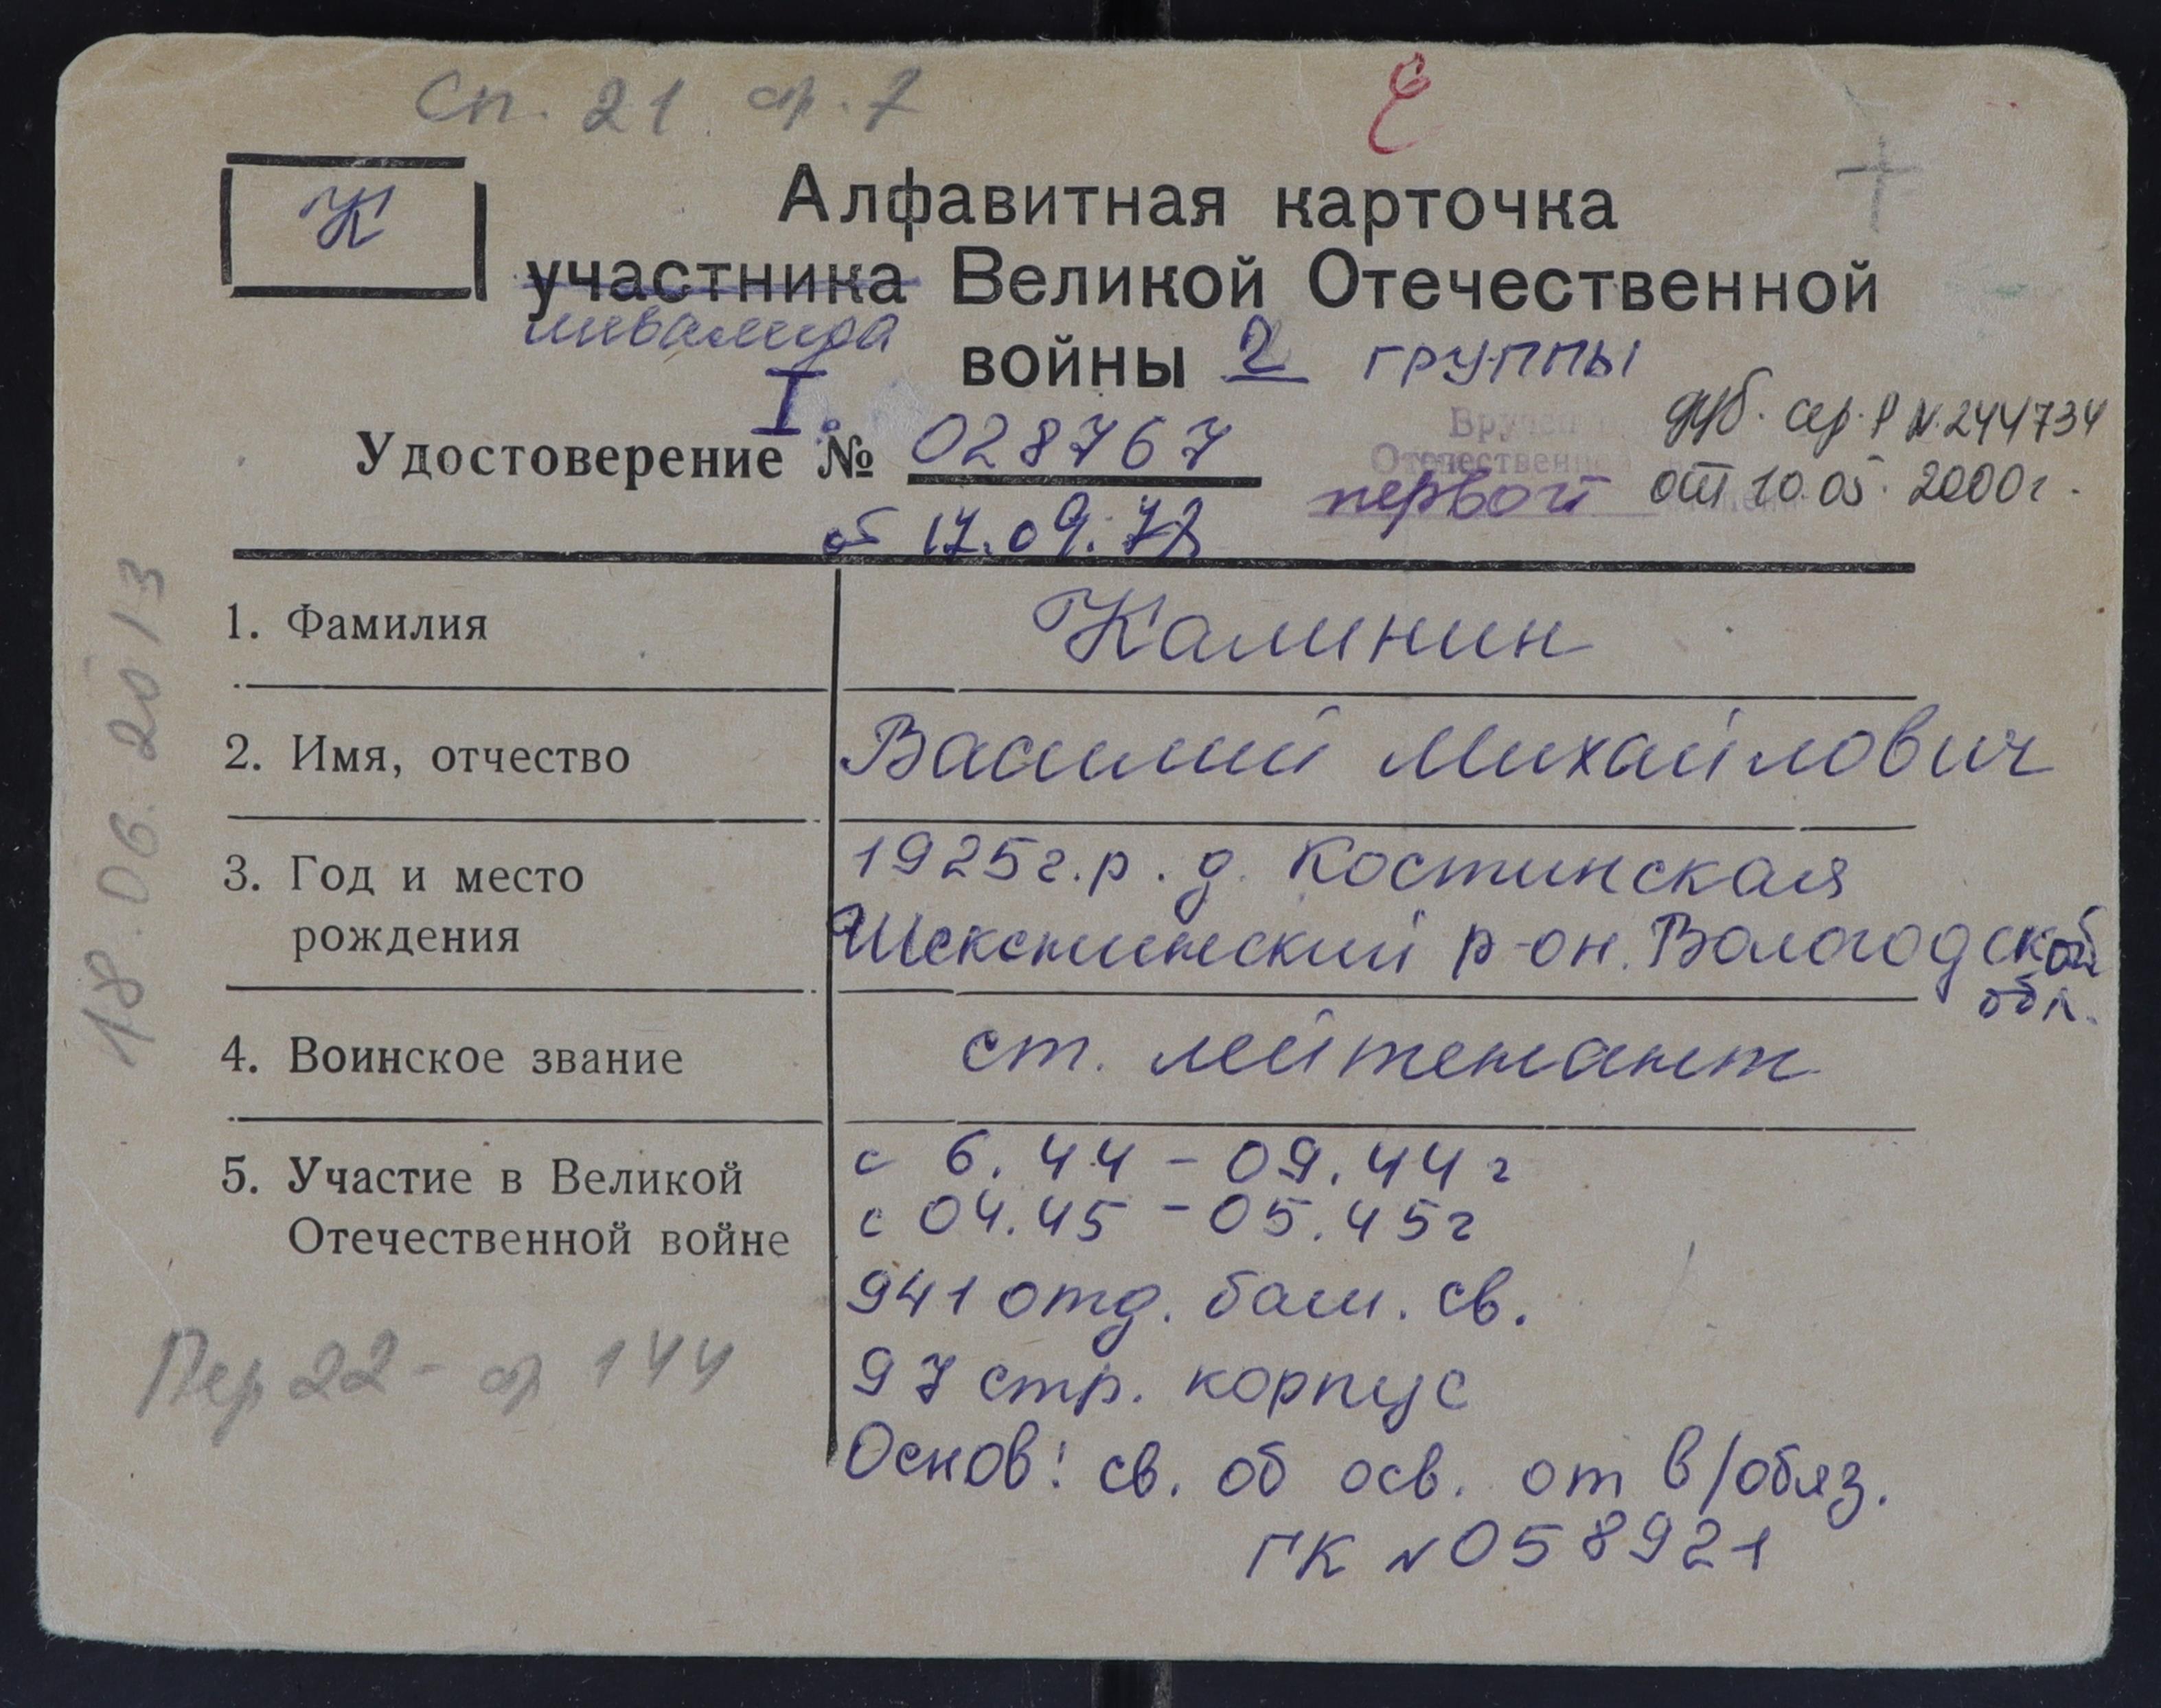 Сп. 21. ср. 7
К
Алфавитная карточка
участника Великой Отечественной
инвалида
войны 2 группы
I
Удостоверение № 028767
от 17.09.78
Вручен
Отечественной
первой
дуб. сер. Р N. 244734
от 10.05. 2000г.
18.06.2013
1. Фамилия
Калинин
2. Имя, отчество
Василий Михайлович
3. Год и место
рождения
1925г.р. д. Костинская
Шекснинский р-он. Вологодской
обл.
4. Воинское звание
ст. лейтенант
5. Участие в Великой
Отечественной войне
с 6.44 - 09.44 г
с 04.45 - 05.45г
941 отд. бат. св.
97 стр. корпус
Основ: св. об осв. от в/обяз.
ГК N 058921
Пер 22 - ср 144